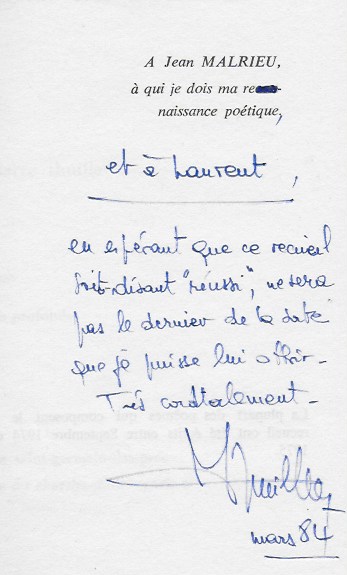 A Jean MALRIEU,
à qui je dois ma re
naissance poétique,
et à Laurent,
en espérant que ce recueil
soi-disant "réussi", ne sera
pas le dernier de la
que je puisse lui offrir -
Très cordialement -
mars 84